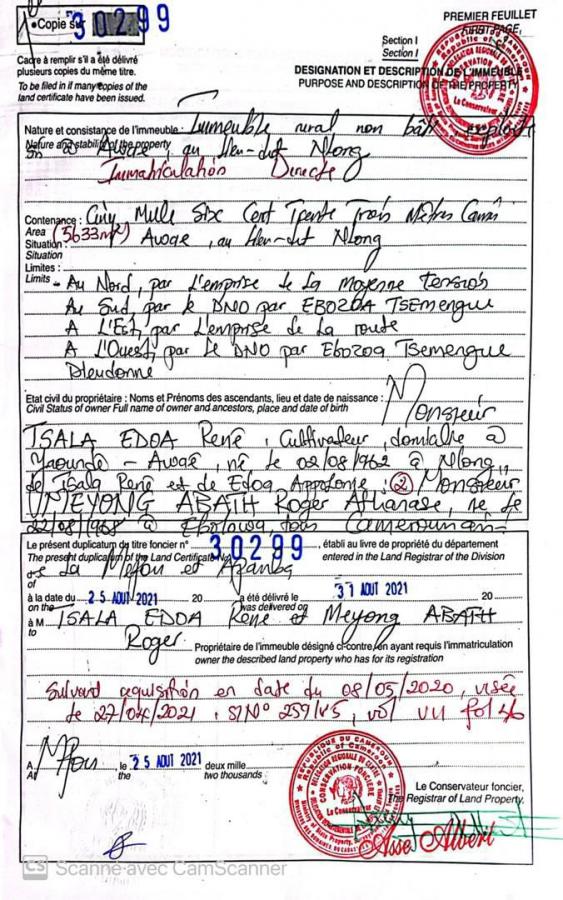 Copie sur 30299
PREMIER FEUILLET
FIRST PAGE
Section I
Section I
Cadre à remplir s'il a été délivré
plusieurs copies du même titre.
To be filed in if many copies of the
land certificate have been issued.
DESIGNATION ET DESCRIPTION DE L'IMMEUBLE
PURPOSE AND DESCRIPTION OF THE PROPERTY
Nature et consistance de l'immeuble : Immeuble rural non bâti, exploité
Nature and stability of the property
sis à Awaé, au lieu-dit Nlong
Immatriculation Directe
Contenance : Cinq Mille Six Cent Trente Trois Mètres Carrés
Area (5633m²)
Situation : Awaé, au lieu-dit Nlong
Situation
Limites :
Limits - Au Nord, par l'emprise de la moyenne tension
Au Sud, par le DNO par EBOZOA TSEMENGUE
A L'Est, par l'emprise de la route
A L'Ouest, par le DNO par Ebozoa Tsemengue
Dieudonné
Etat civil du propriétaire : Noms et Prénoms des ascendants, lieu et date de naissance :
Civil Status of owner Full name of owner and ancestors, place and date of birth
Monsieur
TSALA EDOA René, Cultivateur, domicilié à
Yaoundé - Awaé, né le 02/08/1962 à Nlong,
de Tsala René et de Edoa Appolonie, ② Monsieur
MEYONG ABATH Roger Athanase, né le
22/08/1968 à Ebolowa, tous Camerounais
Le présent duplicatum de titre foncier n° 30299, établi au livre de propriété du département
The present duplicatum of the Land Certificate No entered in the Land Registrar of the Division
de La Mefou et Afamba
of
à la date du 25 AOUT 2021 20 a été délivré le 31 AOUT 2021 20
on the was delivered on
à M TSALA EDOA René et Meyong ABATH
to
Roger Propriétaire de l'immeuble désigné ci-contre, en ayant requis l'immatriculation
owner the described land property who has for its registration
Suivant réquisition en date du 08/05/2020, visée
le 27/04/2021, S/N° 259/V5, vol VII fol 46
A Mfou, le 25 AOUT 2021 deux mille
At the two thousands
Le Conservateur foncier,
The Registrar of Land Property.
Asse Albert
CS Scanné avec CamScanner